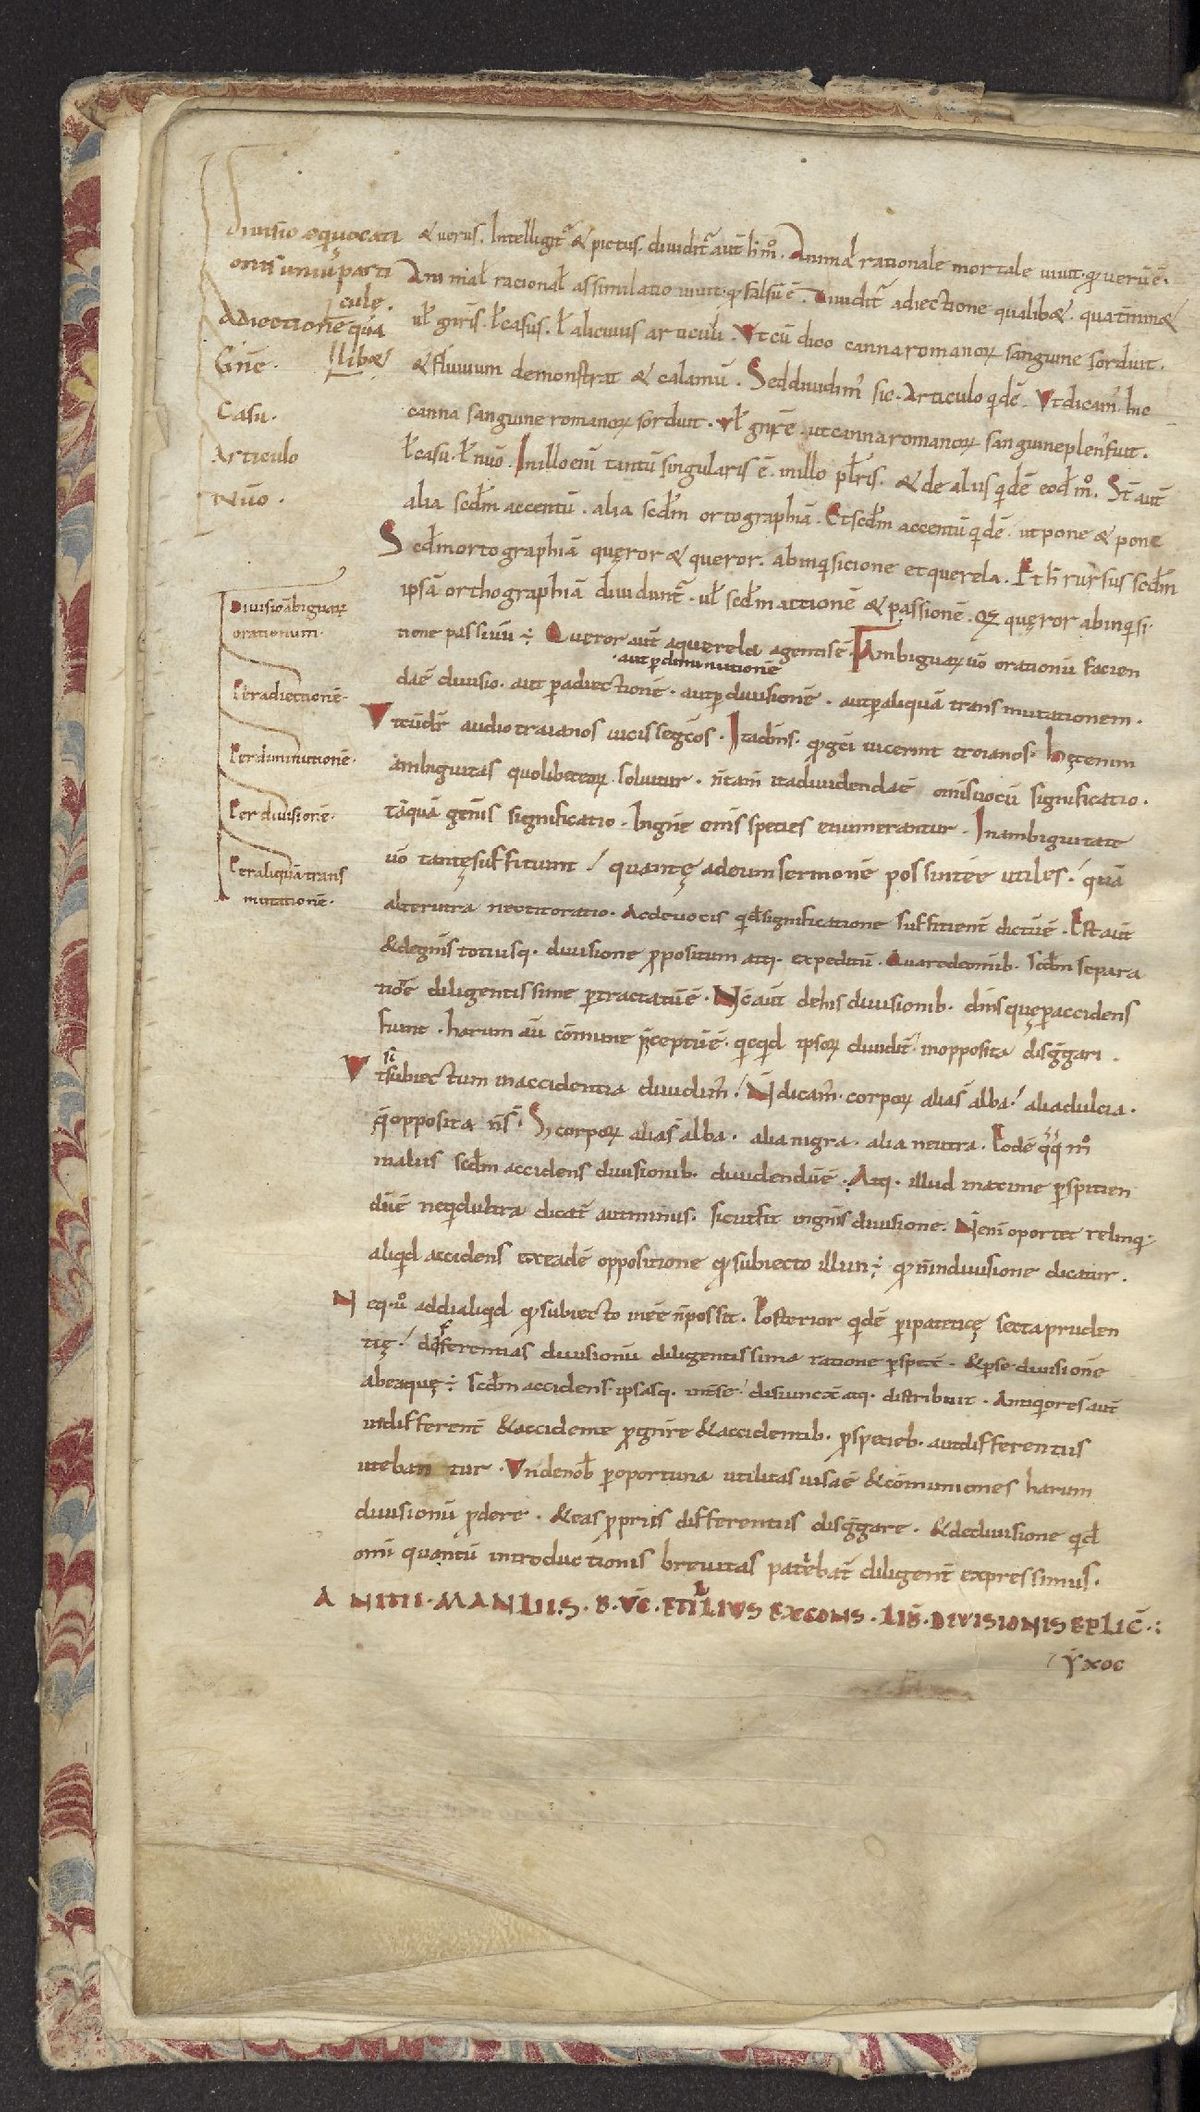 Diuisio equocati
onis uniuˢ parti
culę.
Adiectionē quā
libæ
Gn̄e.
Casu.
Articulo
Nūo.
Diuisio ābiguaꝝ
orationum.
Per adiectionē.
Per diminutionē.
Per diuisionē.
Per aliquā trans
mutationē.
& uerus. Intelligit᷑ & pictus. diuidit᷑ aut̄ h̄ m̊. Animal rationale mortale uiuit. qđ uerū ē.
Animal̄ racional̄ assimilatio uiuit. qđ falsū ē. Diuidit᷑ adiectione qualibæ. quæ t̄minæ
ul̄ gn̄ris. l̄ casus. l̄ alicuius articuli. Vt cū dico canna romanoꝝ sanguine sorduit.
& fluuium demonstrat & calamū. Sed diuidim᷒ sic. Articulo qđē. Vt dicam᷒ hic
canna sanguine romanoꝝ sorduit. Vl̄ gn̄re. ut canna romanoꝝ sanguine plen᷒ fuit.
l̄ casu. l̄ nūo. In illo eni tantū singularis ē. in illo pl̄ris. & de aliis qđē eod̄ m̊. St̄ aut̄
alia scd̄m accentū. alia scd̄m ortographiā. Et scd̄m accentū qđē. ut pone & pone
Scd̄m ortographiā quęror & queror. ab inqisicione et querela. Et h̄ rursus scd̄m
ipsā orthographiā diuidunt᷑. ul̄ scd̄m actionē & passionē. qꝫ quęror ab inqisi
tione passiuū ÷ Queror aut̄ a querela agentis ē. Ambiguaꝝ ūo orationū facien
. aut ꝑ diminutionē
da ē diuisio. aut ꝑ adiectionē. aut ꝑ diuisionē. aut ꝑ aliquā transmutationem.
Vt cū dr̄ audio traianos uicisse gr̄cos. Ita dn̄s. qđ gr̄ci uicerint troianos. hęc enim
ambiguitas quolibet eoꝝ soluitur. n̄ tam̄ ita diuidenda ē omīs uocū significatio.
tāquā gen̄is significatio. In gn̄e om̄s species enumerantur. In ambiguitate
ūo tantę suffitiunt / quantę ad eum sermonē possint ēē utiles. / quā
alterutra nectit oratio. Ac de uocis qđ significatione suffitient̄ dictū ē. Est aut̄
& de gn̄is totiusqꝫ. diuisione ꝓpositum atqꝫ. expeditū. Quare de omib. scd̄m separa
tiōe diligentissime ꝑtractatū ē. Nc̄ aut̄ de his diuisionib. dn̄s quę ꝑ accidens
fiunt. harum aū cōmune p̄ceptū ē. qicqid ipsoꝝ diuidit᷑ in opposita disg̃gari.
si
Vt subiectum in accidentia diuidim᷒. / N̄ dicam᷒. corpoꝝ alia s̄ alba. / alia dulcia.
q̄ opposita n̄ s̄. Sꝫ corpoꝝ alia s̄ alba. alia nigra. alia neutra. Eodē q̊q m̊
in aliis scd̄m accidens diuisionib. diuidendū ē. Atqꝫ. illud maxime ꝑspitien
dū ē ne qid ultra dicat᷑ aut minus. sicut fit in gn̄is diuisione. N̄ eni oportet relinqi
aliqid accidens ex eadē oppositione qđ subiecto illi in ÷ qđ n̄ in diuisione dicatur.
Neqꝫ. ů addi aliqid qđ subiecto inēē n̄ possit. Posterior qđē ꝑipateticę secta pruden
tię. / differentias diuisionū diligentissima ratione ꝑspex̄. & ꝑ se diuisionē
ab ea quę ÷ scd̄m accidens. ipsasqꝫ. int̄ se. disiunc̄ atqꝫ. distribuit. Antiqiores aut̄
indifferent̄ & accidente ꝓ gn̄re & accidentib. ꝓ specieb. aut differentiis
utebantur. Vnde nob̄ ꝑoportuna utilitas uisa ē & cōmuniones harum
diuisionū ꝓdere. & eas ꝓpriis differentiis disg̃gare. & de diuisione qđ
om̄i quantū introductionis breuitas patiebat᷑ diligent̄ expressimus.
ANITII. MANLII. S. B. VC̄. ET ILLVS EX CONS. LIB̄. DIVISIONIS EXPLIC̄. :